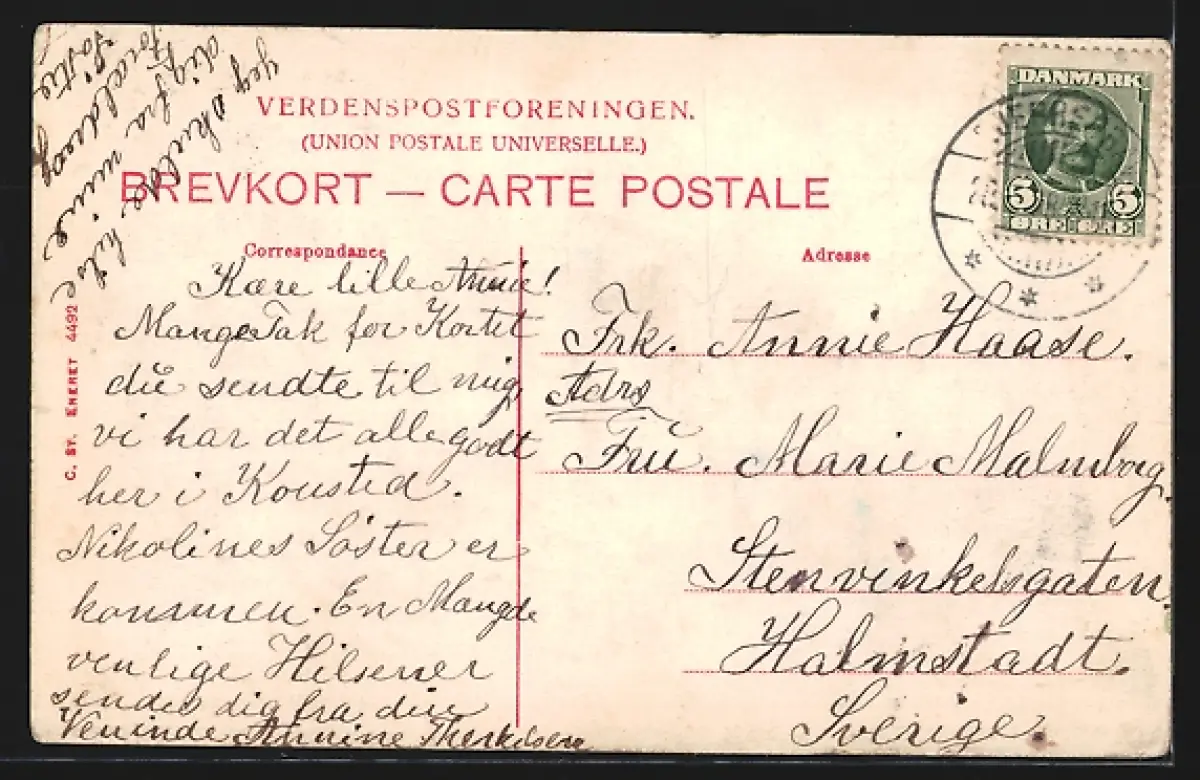 Jeg skulde hilse
dig fra mine
Forældre og
Søstre
VERDENSPOSTFORENINGEN.
(UNION POSTALE UNIVERSELLE.)
BREVKORT — CARTE POSTALE
DANMARK
5 5
ØRE ØRE
Correspondance
Adresse
C. St. Eneret 4492
Kære lille Annie!
Mange Tak for Kortet
du sendte til mig
vi har det alle godt
her i Kousted.
Nikolines Søster er
kommen. En Mangde
venlige Hilsener
sendes dig fra din
Veninde Annine Therkelsen
Frk. Annie Haase.
Adrs
Fru. Marie Malmborg.
Stenvinkelsgaten.
Halmstadt.
Sverige.